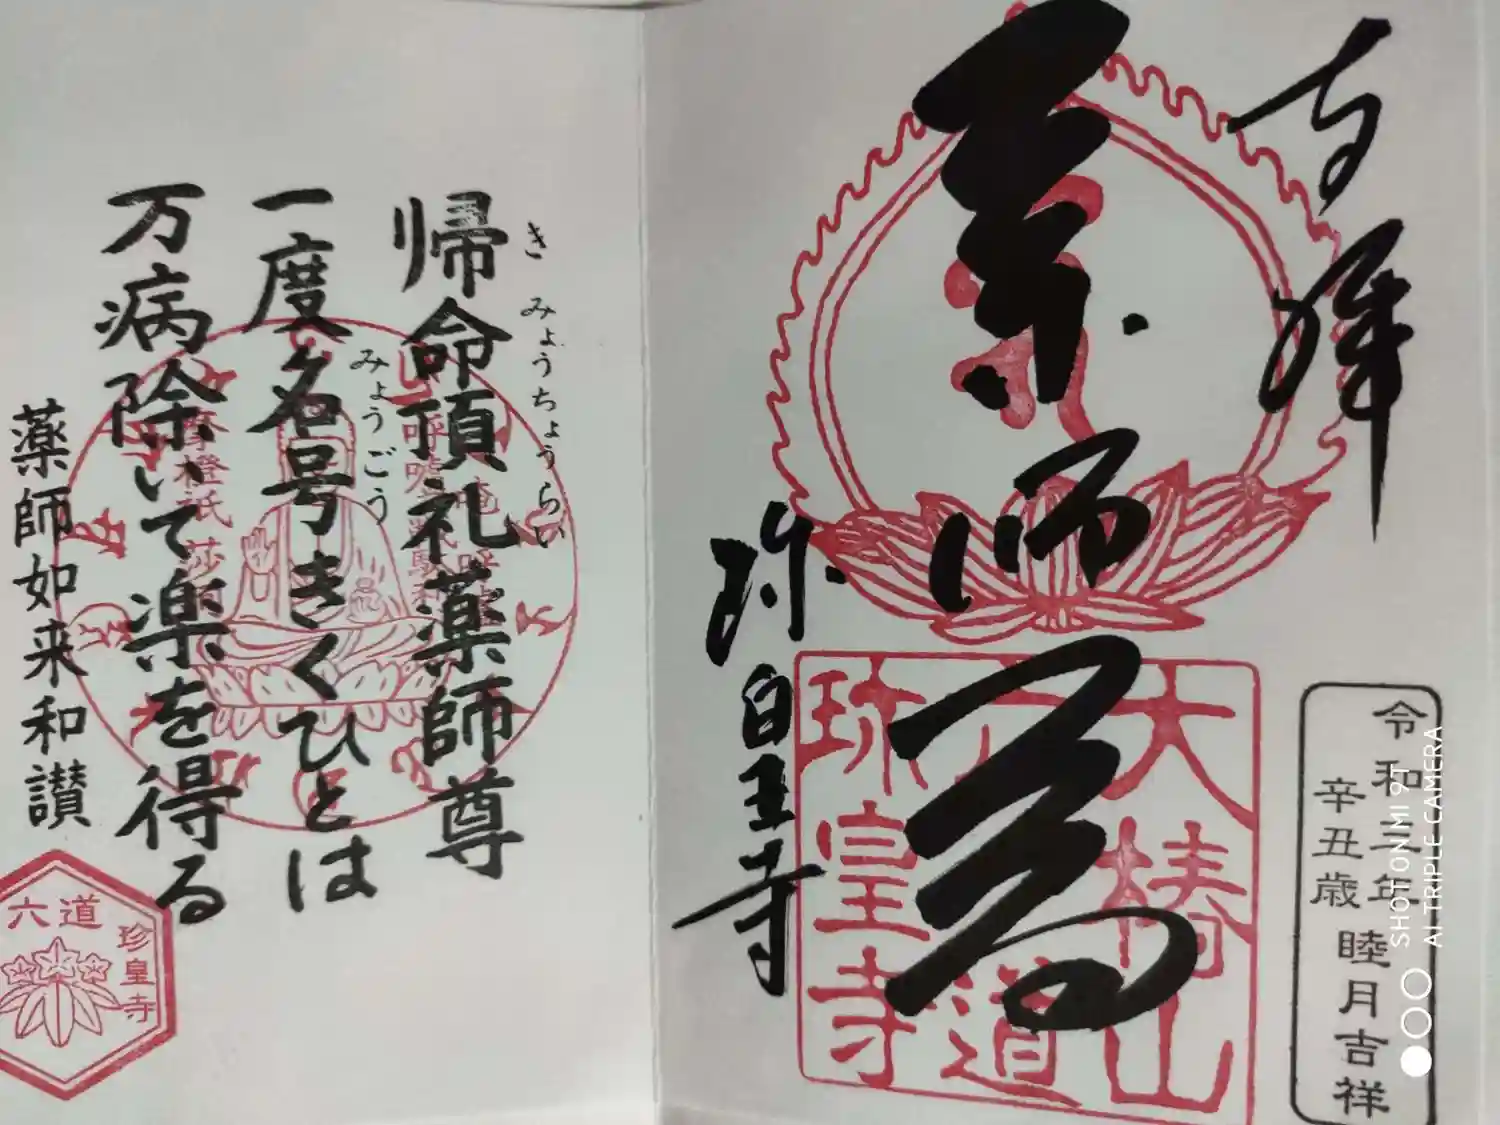 奉拝
薬師尊
珍皇寺
大椿山
六道
珍皇寺
令和三年
辛丑歳
睦月吉祥
帰命頂礼薬師尊
きみょうちょうらい
一度名号きくひとは
みょうごう
万病除いて楽を得る
薬師如来和讃
六道
珍皇寺
SHOT ON MI 9T
AI TRIPLE CAMERA